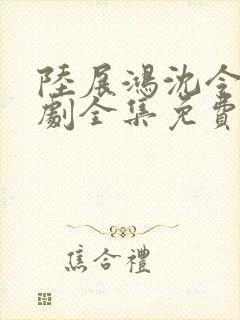 陸展鴻沈令
劇全集免費
焦合禮